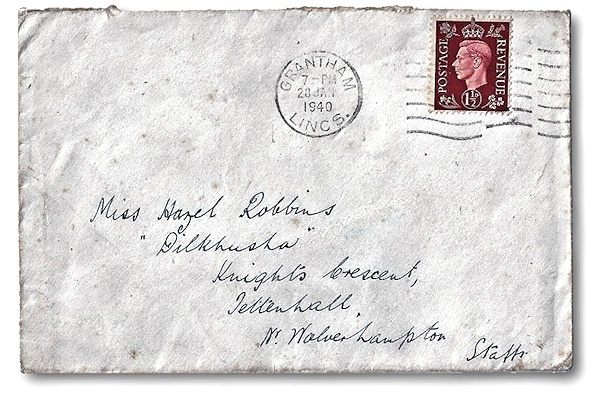 POSTAGE REVENUE
1½D
GRANTHAM
7-PM
20 JAN
1940
LINCS.
Miss Hazel Robbins
"Dilkhusha"
Knight's Crescent,
Tettenhall,
Nr. Wolverhampton
Staffs